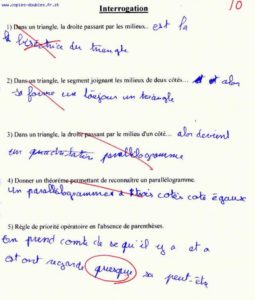 www.copies-doubles.fr.st
Interrogation
10
1) Dans un triangle, la droite passant par les milieux.. est la
la bisectrice du triangle
2) Dans un triangle, le segment joignant les milieux de deux côtés… alor
sa forme toujour un triangle
3) Dans un triangle, la droite passant par le milieu d'un coté... alors devient
un parallélogramme
4) Donner un théorème permettant de reconnaître un parallélogramme.
Un parallélogrammes a trois cotés coté égaux
5) Règle de priorité opératoire en l'absence de parenthèses.
on prend comte de se qu'il y a et a
regarde quesque sa peut-être